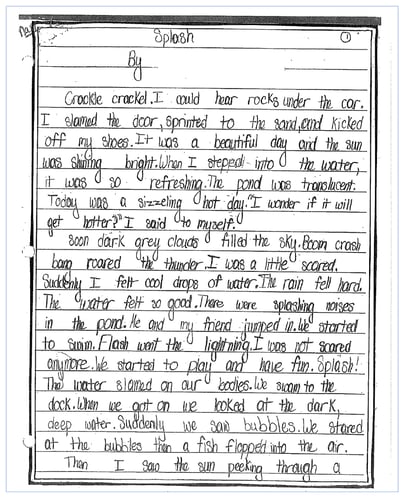 Splash
1
By
Crackle crackel. I could hear rocks under the car.
I slamed the door, sprinted to the sand, and kicked
off my shoes. It was a beautiful day and the sun
was shining bright. When I steped into the water,
it was so refreshing. The pond was translucent.
Today was a sizzeling hot day. "I wonder if it will
get hotter?" I said to myself.
Soon dark grey clouds filled the sky. Boom crash
bang roared the thunder. I was a little scared.
Suddenly I felt cool drops of water. The rain fell hard.
The water felt so good. There were splashing noises
in the pond. Me and my friend jumped in. We started
to swim. Flash went the lightning. I was not scared
anymore. We started to play and have fun. Splash!
The water slamed on our bodies. We swam to the
dock. When we got on we looked at the dark,
deep water. Suddenly we saw bubbles. We stared
at the bubbles then a fish flopped into the air.
Then I saw the sun peeking through a